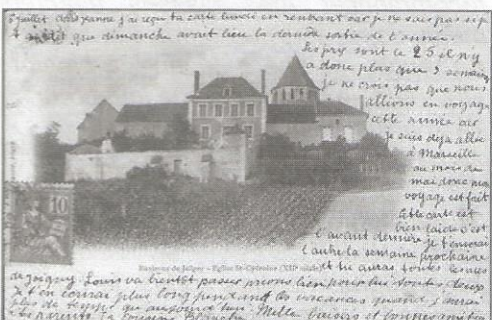 juillet chère Jeanne j'ai reçu ta carte lundi en rentrant car je ne sais pas si je
t'ai dit que dimanche avait lieu la dernière sortie de l'année.
les prix sont le 25 il n'y
a donc plus que 3 semaines
je ne crois pas que nous
allions en voyage
cette année car
je suis déjà allée
à Marseille
au mois de
mai donc mon
voyage est fait
Cette carte est
bien laide c'est
l'avant dernière je t'enverrai
l'autre la semaine prochaine
et tu auras toutes les vues
10
Environs de Joigny - Eglise St-Cydroine (XIIe siècle)
de Joigny. Louis va bientôt passer prions bien pour lui toutes deux
Je t'en écrirai plus long pendant les vacances quand j'aurai
plus de temps qu'aujourd'hui. Mille baisers et bonnes amitiés
tes parents. Ta cousine Blanche